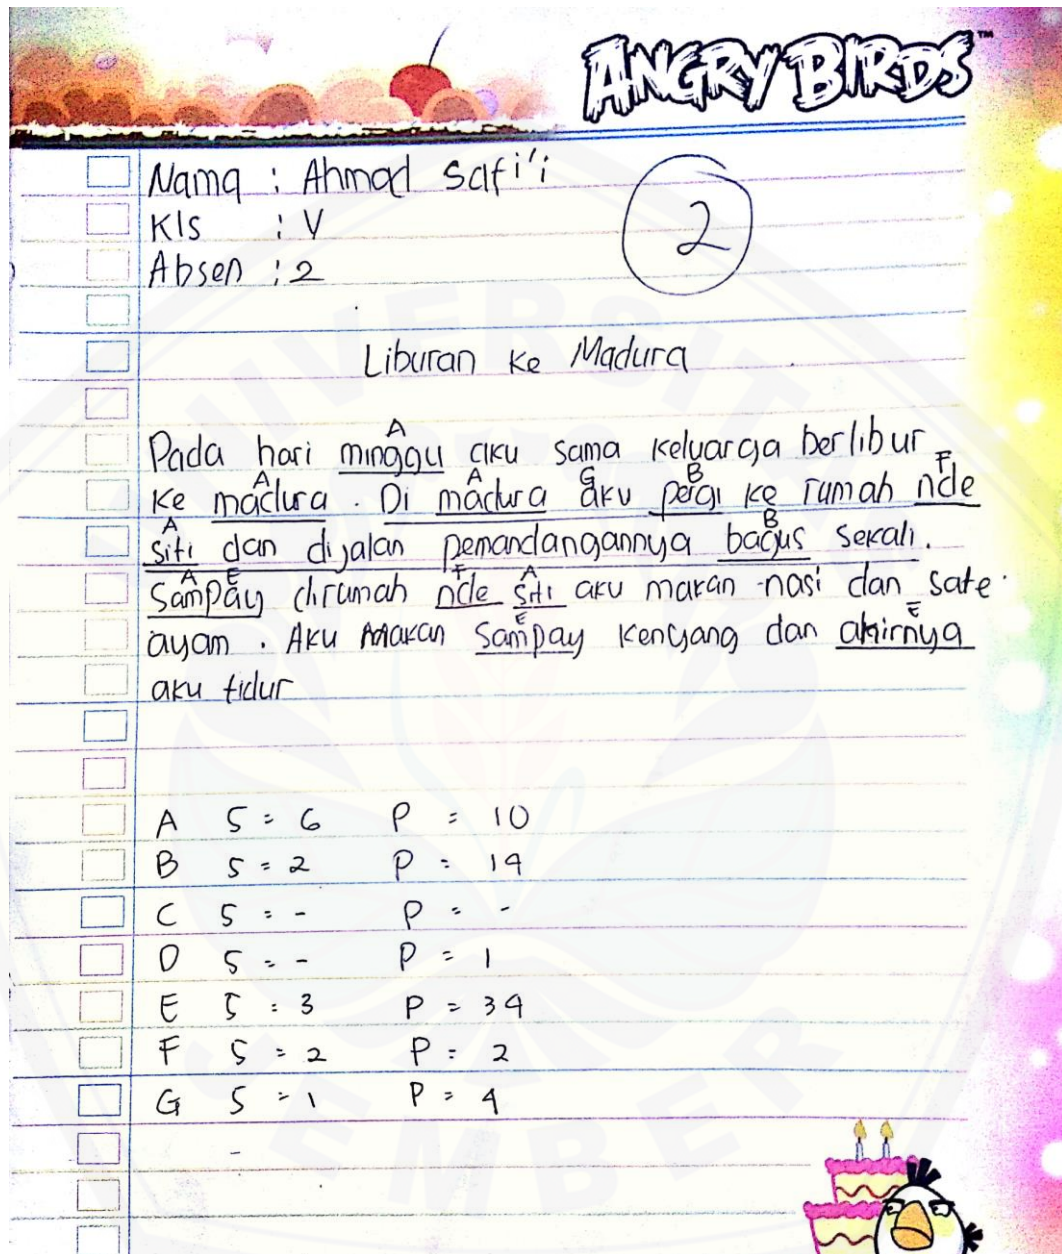 ANGRY BIRDS™
Nama : Ahmad Safi'i
Kls : V
2
Absen : 2
Liburan ke Madura
A
Pada hari minggu aku sama keluarga berlibur
A A G B F
ke madura. Di madura aku pergi ke rumah nde
A B
siti dan dijalan pemandangannya bagus sekali.
A E F A
Sampay dirumah nde siti aku makan nasi dan sate
E E
ayam. Aku makan sampay kenyang dan akirnya
aku tidur
A S = 6 P = 10
B S = 2 P = 19
C S = - P = -
D S = - P = 1
E S = 3 P = 39
F S = 2 P = 2
G S = 1 P = 4
UNIVERSITAS
JEMBER